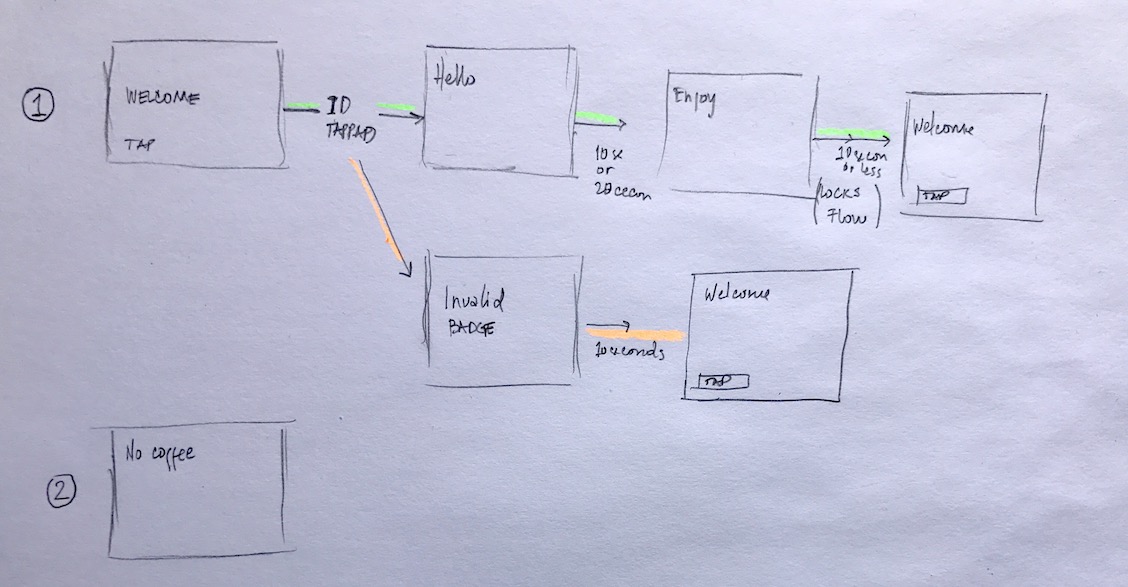 1
WELCOME
TAP
ID
TAPPAD
Hello
10s
or
20
Enjoy
10
or less
(LOCKS
FLOW)
Welcome
TAP
Invalid
BADGE
10seconds
Welcome
TAP
2
No coffee